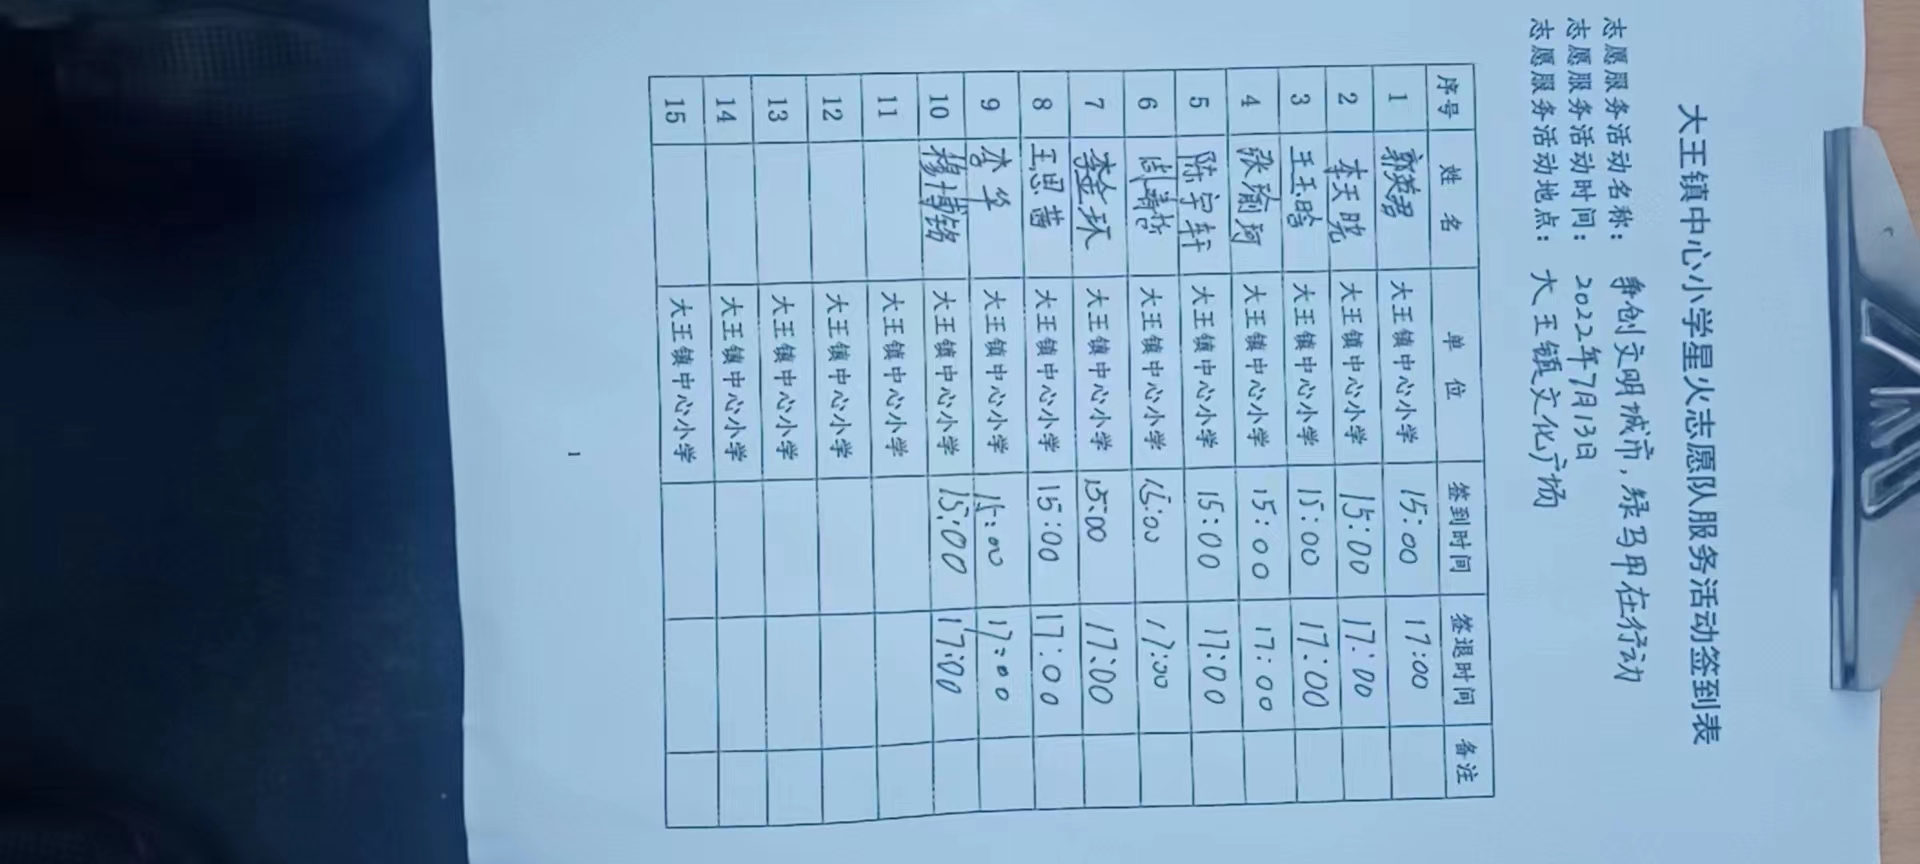 大王镇中心小学星火志愿队服务活动签到表
志愿服务活动名称： 争创文明城市,绿马甲在行动
志愿服务活动时间： 2022年7月13日
志愿服务活动地点： 大王镇文化广场
序号 姓名 单位 签到时间 签退时间 备注
1 郭英君 大王镇中心小学 15:00 17:00
2 李天晓 大王镇中心小学 15:00 17:00
3 王玉晗 大王镇中心小学 15:00 17:00
4 张瑜珂 大王镇中心小学 15:00 17:00
5 陈宇轩 大王镇中心小学 15:00 17:00
6 大王镇中心小学 15:00 17:00
7 李金环 大王镇中心小学 15:00 17:00
8 王思茜 大王镇中心小学 15:00 17:00
9 李华 大王镇中心小学 15:00 17:00
10 杨博铭 大王镇中心小学 15:00 17:00
11 大王镇中心小学
12 大王镇中心小学
13 大王镇中心小学
14 大王镇中心小学
15 大王镇中心小学
1